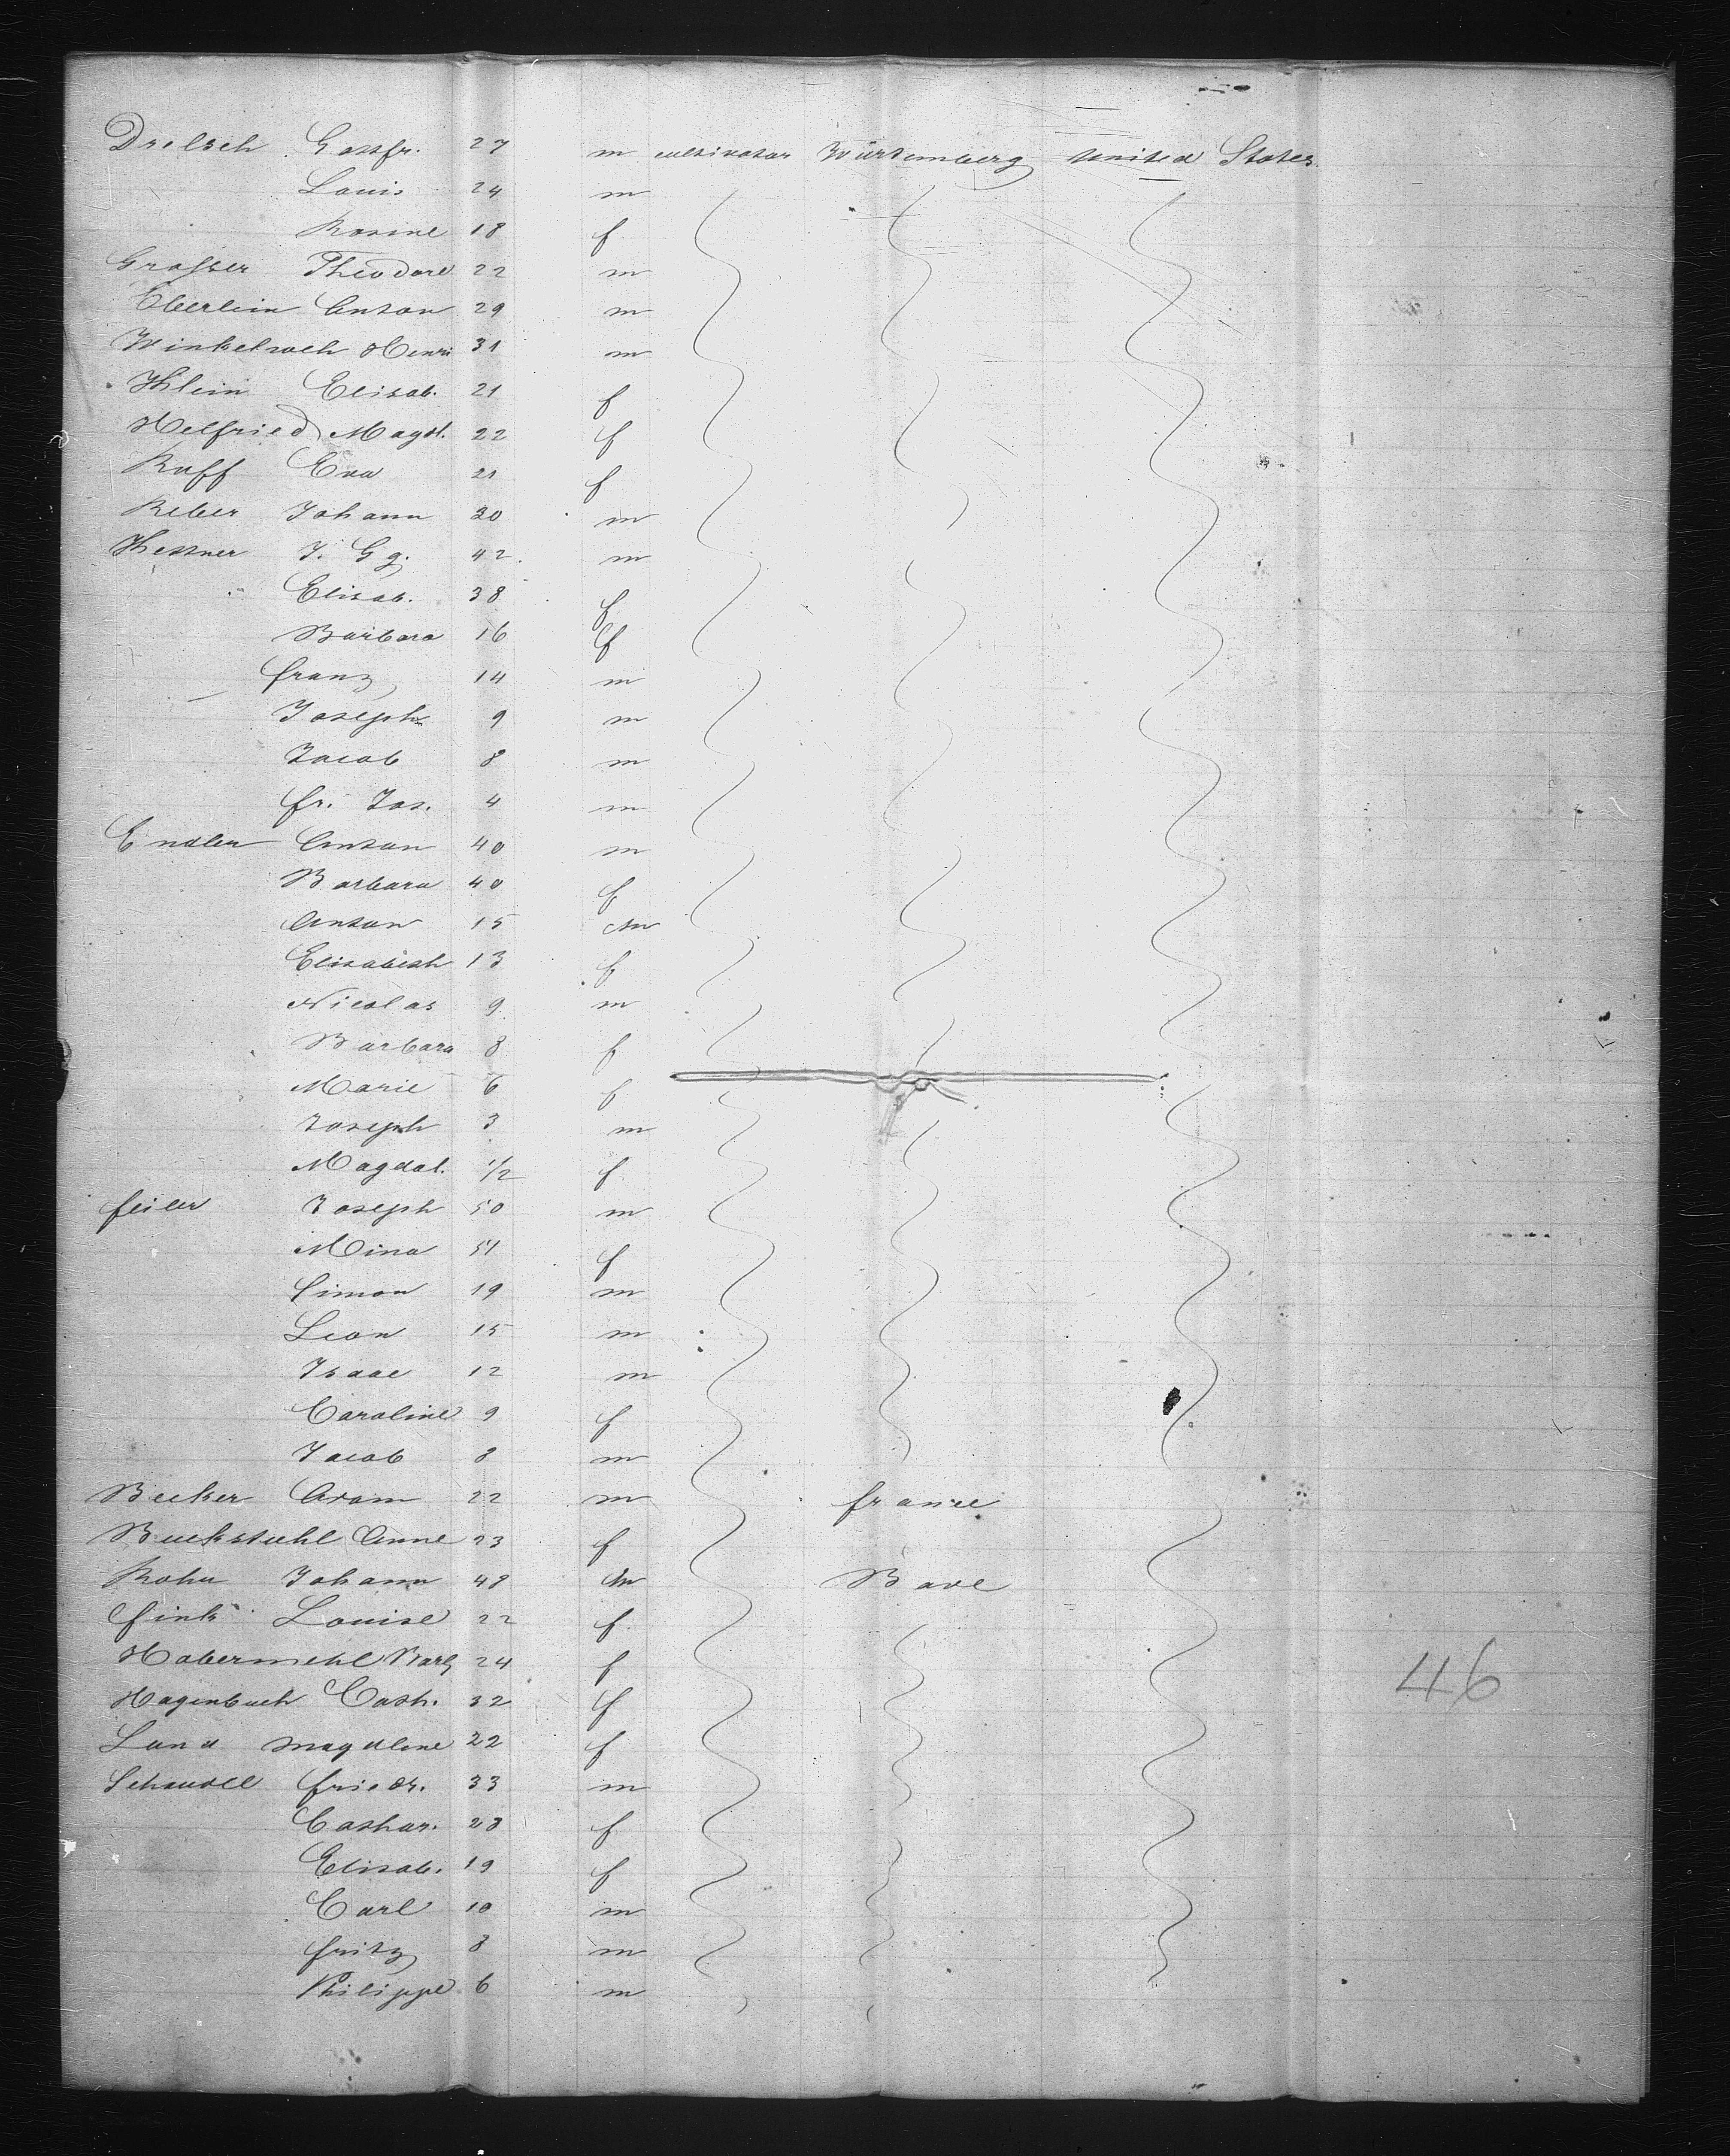 Drelsch Gottfr. 27 m cultivator Würtemberg United States.
Louis 24 m
Rosine 18 f
Grasser Theodore 22 m
Eberlein Anton 29 m
Winkelroch Henri 31 m
Klein Elisab. 21 f
Helfried Magd. 22 f
Ruff Eva 21 f
Reber Johann 30 m
Kestner J. Gg. 42. m
Elisab. 38 f
Barbara 16 f
franz 14 m
Joseph 9 m
Jacob 8 m
fr. Jos. 4 m
Endler Anton 40 m
Barbara 40 f
Anton 15 m
Elisabeth 13 f
Nicolas 9 m
Barbara 8 f
Marie 6 f
Joseph 3 m
Magdal. 1/2 f
feiler Joseph 50 m
Mina 51 f
Simon 19 m
Leon 15 m
Isaac 12 m
Caroline 9 f
Jacob 8 m
Becker Adam 22 m france
Buckstuhl Anne 23 f
Rohn Johann 48 m Bade
fink Louise 22 f
Habermehl Barb 24 f
Hagenbuch Cath. 32 f
Land Magdlene 22 f
Schaudel friedr. 33 m
Cathar. 28 f
Elisab. 19 f
Carl 10 m
fritz 8 m
Philippe 6 m
46